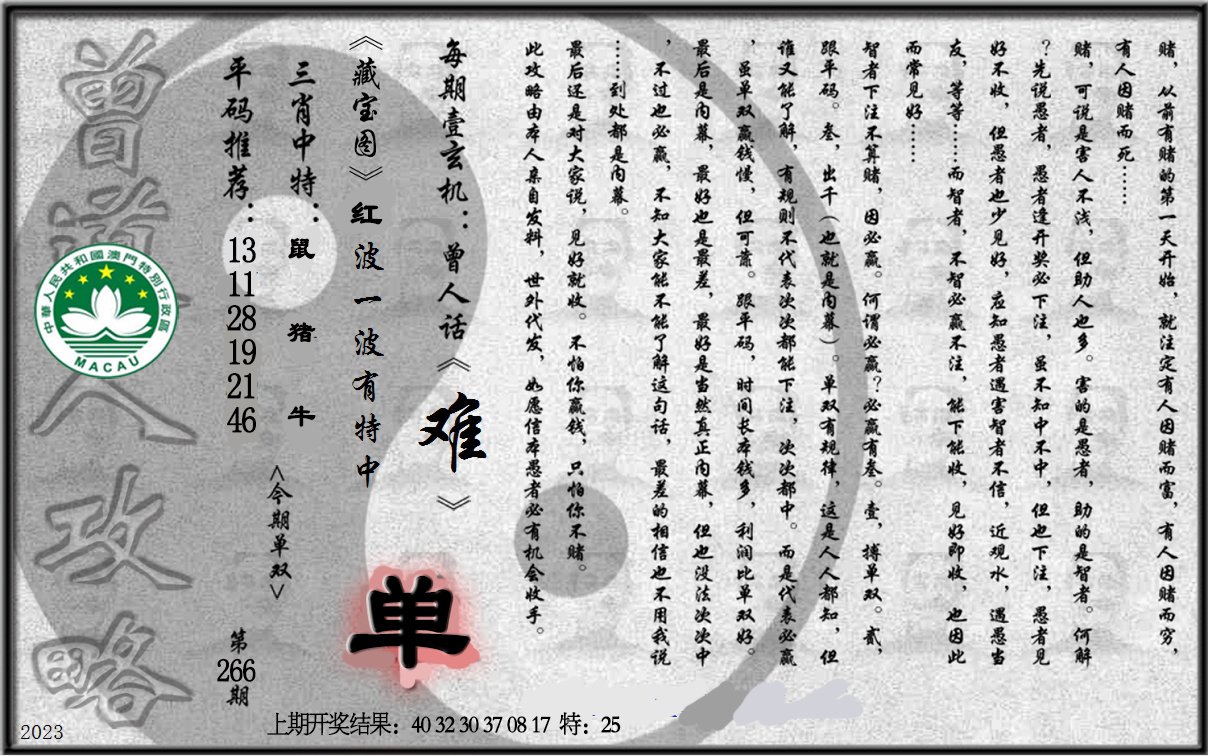 赌，从前有赌的第一天开始，就注定有人因赌而富，有人因赌而穷，
有人因赌而死……
赌，可说是害人不浅，但助人也多。害的是愚者，助的是智者。何解
？先说愚者，愚者逢开奖必下注，虽不知中不中，但也下注，愚者见
好不收，但愚者也少见好，应知愚者遇害智者不信，近观水，遇愚当
友，等等……而智者，不智必赢不注，能下能收，见好即收，也因此
而常见好……
智者下注不算赌，因必赢。何谓必赢？必赢有叁。壹，搏单双。贰，
跟平码。叁，出千（也就是内幕）。单双有规律，这是人人都知，但
谁又能了解，有规则不代表次次都能下注，次次都中。而是代表必赢
，虽单双赢钱慢，但可靠。跟平码，时间长本钱多，利润比单双好。
最后是内幕，最好也是最差，最好是当然真正内幕，但也没法次次中
，不过也必赢，不知大家能不能了解这句话，最差的相信也不用我说
……到处都是内幕。
最后还是对大家说，见好就收。不怕你赢钱，只怕你不赌。
此攻略由本人亲自发料，世外代发，如愿信本愚者必有机会收手。
每期壹玄机：曾人话《难》
《藏宝图》红波一波有特中
单
三肖中特：鼠 猪 牛
<今期单双>
平码推荐：13 11 28 19 21 46
第266期
曾道人攻略
中華人民共和國澳門特別行政區
MACAU
上期开奖结果：40 32 30 37 08 17 特：25
2023